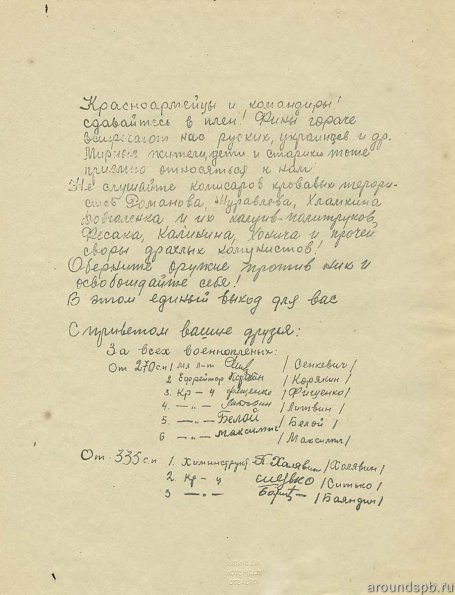 Красноармейцы и командиры!
сдавайтесь в плен! Фины горяче
встречают нас руских, украинцев и др.
Мирные жители, дети и старики тоже
приятно относяться к нам.
Не слушайте комисаров кровавых терори-
стов Романова, Муравлова, Хламкина
Довгаленка и их халуив-политруков,
Фесака, Калинина, и прочей
своры дряхлых комунистов!
Оберните оружие против них и
освобошдайте себя!
В этом единый выход для вас
С приветом ваши друзья:
За всех военнопленых:
От 270 сп 1 мл л-т /Сенкевич/
2 Ефрейтор /Корякин/
3. Кр-ц /Фищенко/
4 —„— /Литвин/
5 —„— Белой /Белой/
6 —„— Максимич /Максимич/
От 335 сп 1. Химинструкт П. Халявин /Халявин/
2. Кр-ц Ситько /Ситько/
3 —„— /Баяндин/
aroundspb.ru